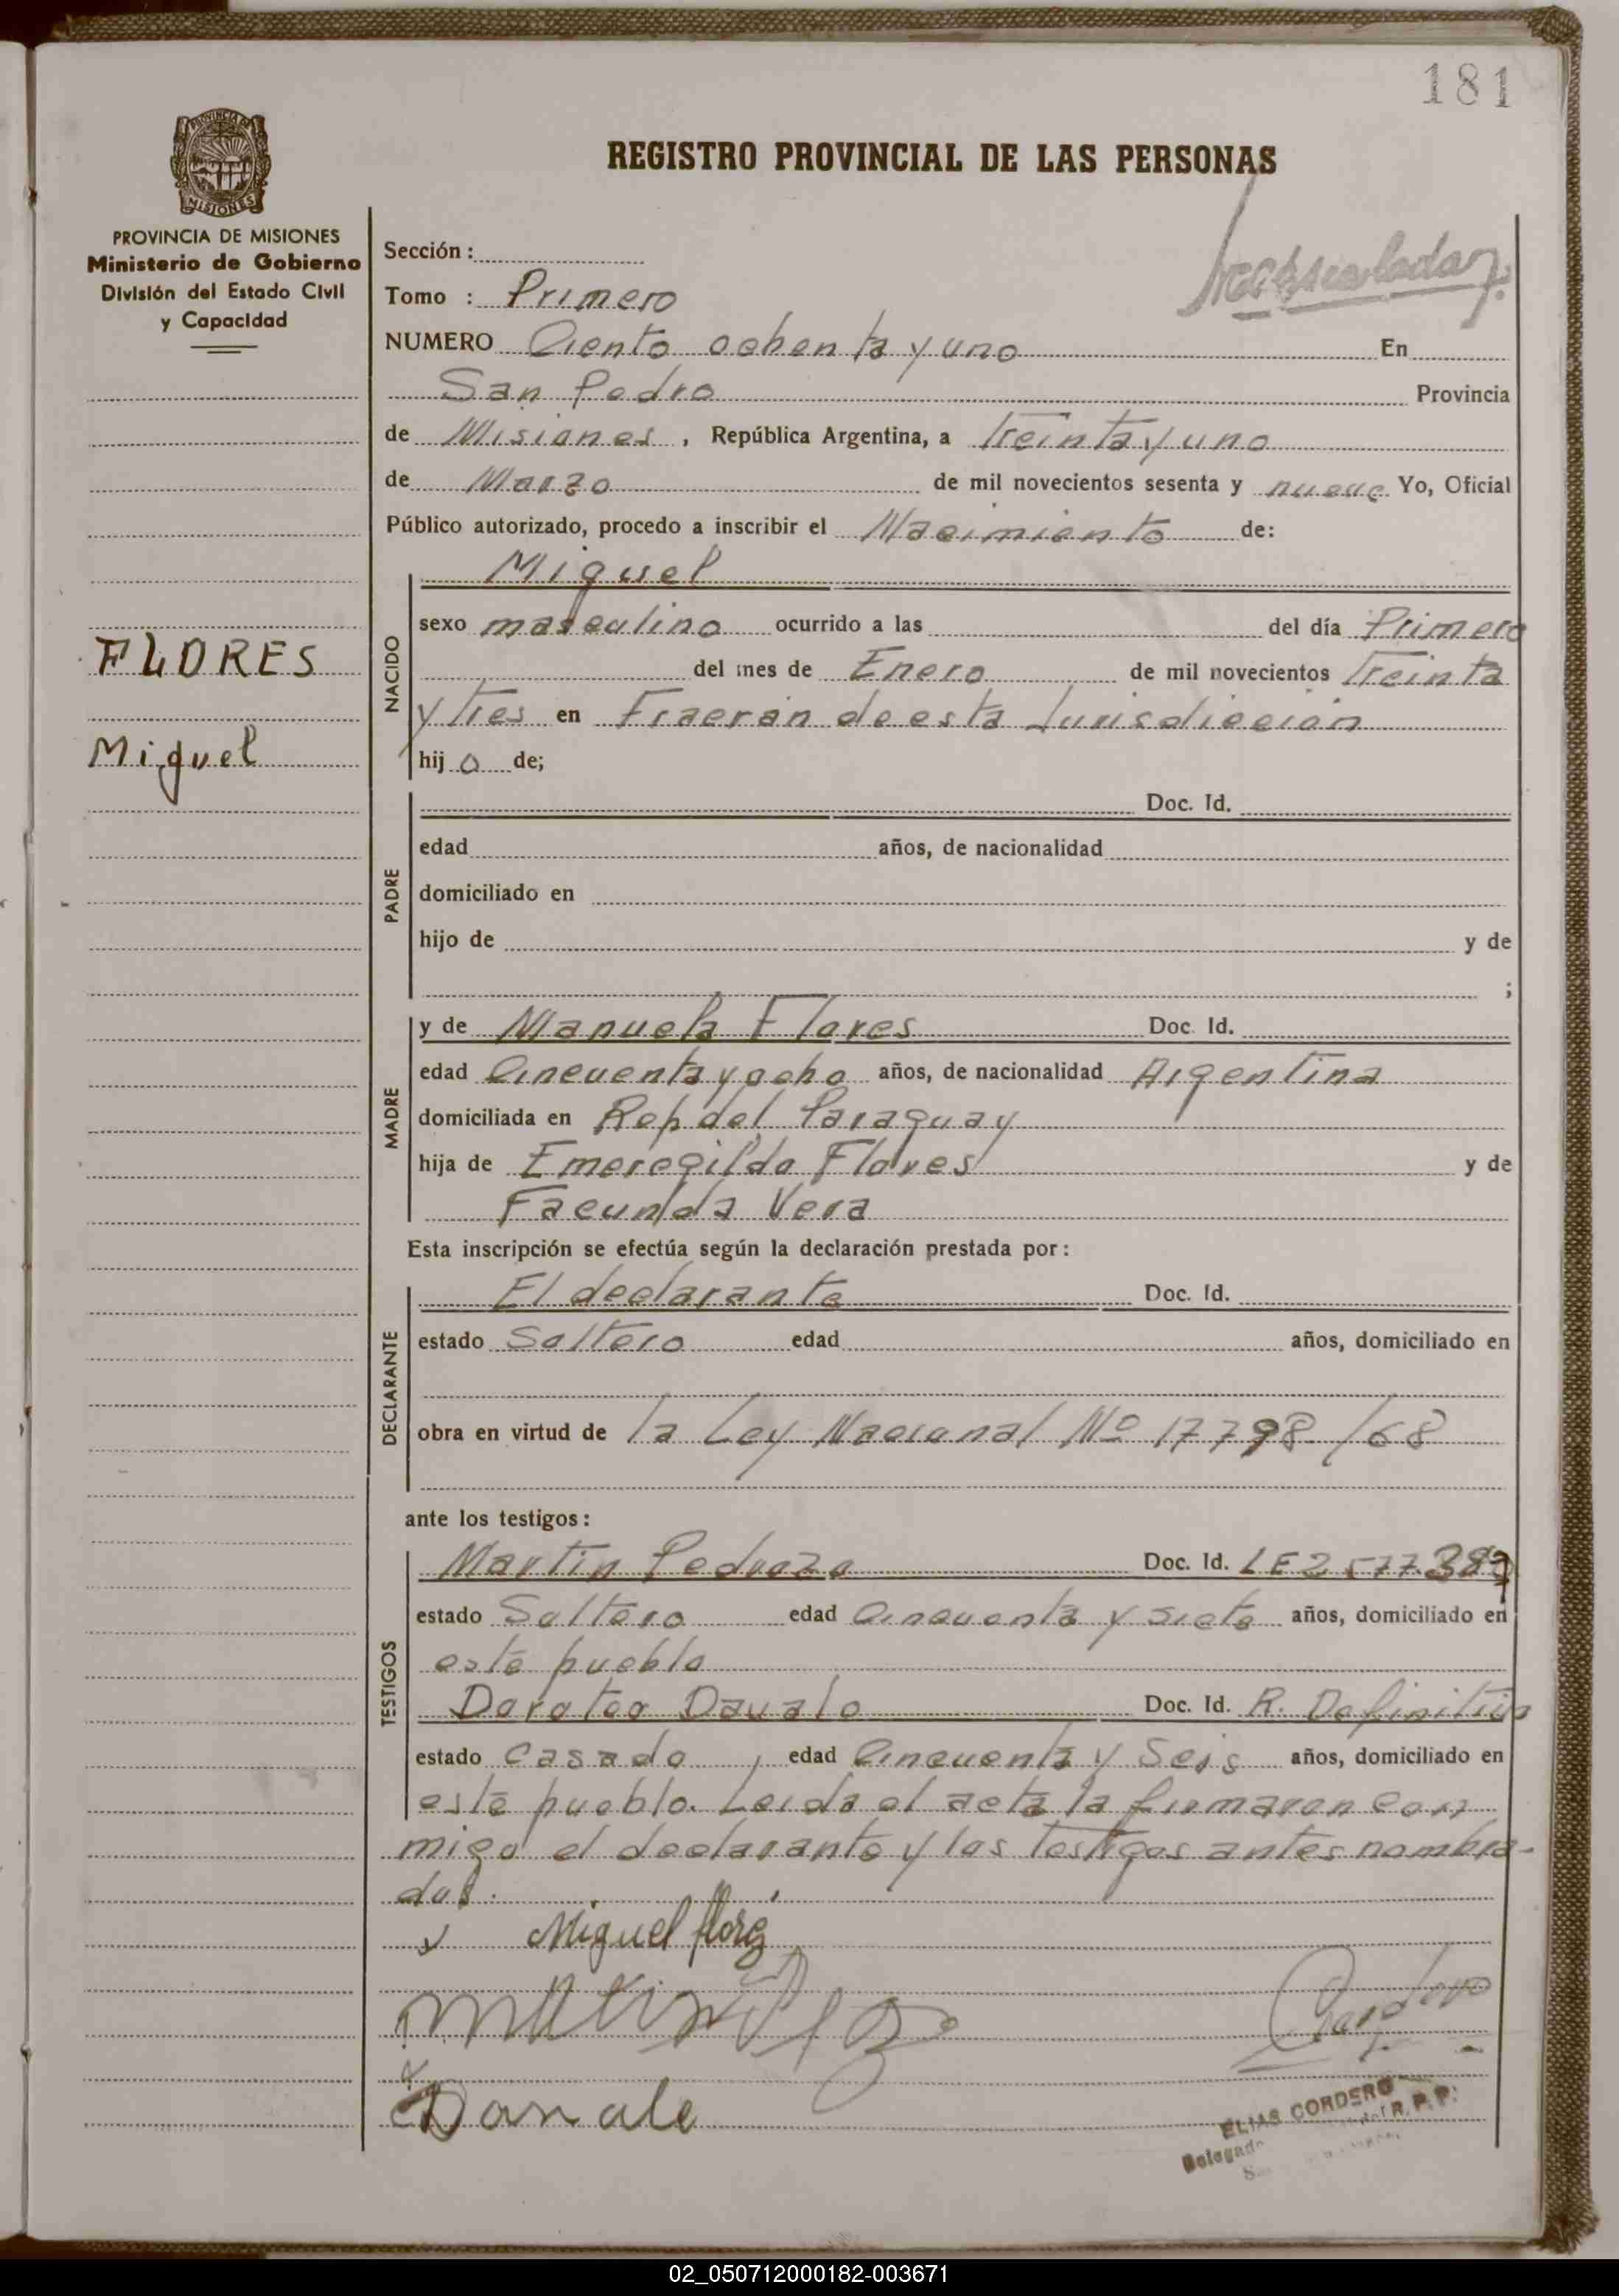 181
PROVINCIA DE
MISIONES
REGISTRO PROVINCIAL DE LAS PERSONAS
PROVINCIA DE MISIONES
Ministerio de Gobierno
División del Estado Civil
y Capacidad
FLORES
Miguel
Sección :
Tomo : Primero
NUMERO Ciento ochenta y uno En
San Pedro Provincia
de Misiones, República Argentina, a treinta y uno
de Marzo de mil novecientos sesenta y nueve Yo, Oficial
Público autorizado, procedo a inscribir el Nacimiento de:
NACIDO
Miguel
sexo masculino ocurrido a las del día Primero
del mes de Enero de mil novecientos treinta
y tres en Fracrán de esta Jurisdicción
hij o de;
PADRE
Doc. Id.
edad años, de nacionalidad
domiciliado en
hijo de y de
;
MADRE
y de Manuela Flores Doc. Id.
edad Cincuenta y ocho años, de nacionalidad Argentina
domiciliada en Rep del Paraguay
hija de Emeregildo Flores y de
Facunda Vera
Esta inscripción se efectúa según la declaración prestada por:
DECLARANTE
El declarante Doc. Id.
estado Soltero edad años, domiciliado en
obra en virtud de la Ley Nacional Nº 17798/68
ante los testigos:
TESTIGOS
Martin Pedrozo Doc. Id. LE
estado Soltero edad Cincuenta y siete años, domiciliado en
este pueblo
Doroteo Davalo Doc. Id. R. Definitivo
estado Casado, edad Cincuenta y Seis años, domiciliado en
este pueblo. Leida el acta la firmaron con
migo el declarante y los testigos antes nombra-
dos.
Miguel flores
Davale
ELIAS CORDERO
Delegado R. P. P.
02_050712000182-003671